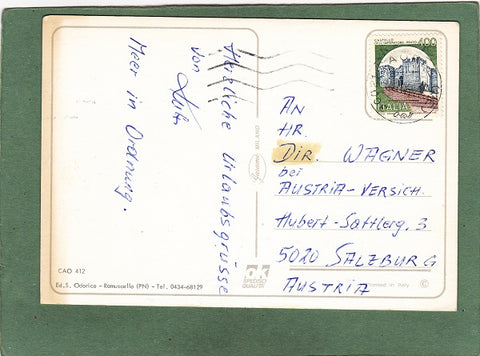 Herzliche Urlaubsgrüsse
von
Meer in Ordnung.
AN
HR.
DIR. WAGNER
bei
AUSTRIA-VERSICH.
Hubert-Sattlerg. 3
5020 SALZBURG
AUSTRIA
400
ITALIA
MILANO
CAO 412
Ed. S. Odorico - Ramuscello (PN) - Tel. 0434-68129
Printed in Italy
©